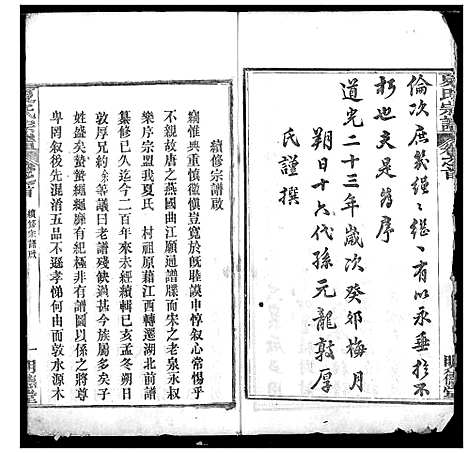 倫次庶幾繩繩繼繼有以永垂於不
朽也夫是為序
道光二十三年歲次癸卯梅月
朔日十六代孫元龍敦厚
氏謹撰
續修宗譜啟
竊惟興重慎徽慎豈寬於旣睦謨申惇敘心常惕乎
不親故唐之燕國曲江願通譜牒而宋之老泉永叔
樂序宗盟我夏氏 村祖原藉江西轉遷湖北前譜
纂修已久迄今二百年來未經續輯已亥孟冬朔日
敦厚兄約余等議曰老譜殘缺過甚今族屬多矣子
姓盛矣螽螽繩繩靡有紀極非有譜圖以係之將尊
卑罔敘後先混淆五品不遜孝悌何由而敦水源木
續修宗譜啟
一
明德堂